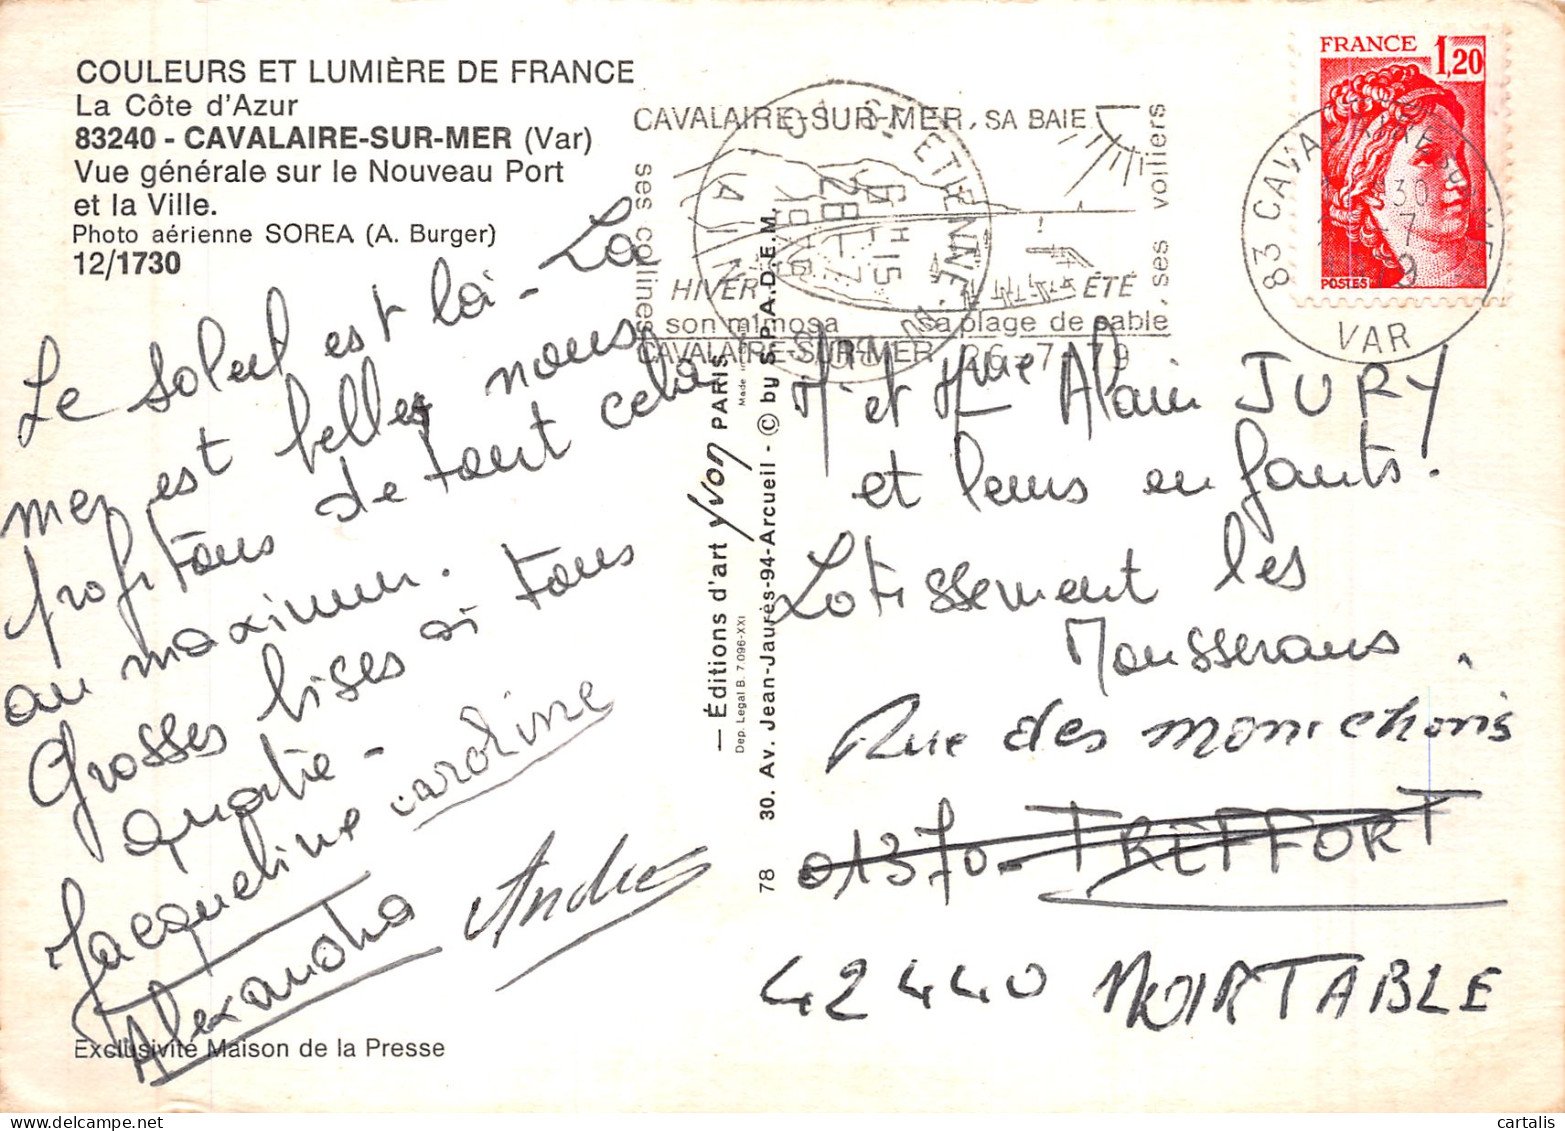 COULEURS ET LUMIÈRE DE FRANCE
La Côte d'Azur
83240 - CAVALAIRE-SUR-MER (Var)
Vue générale sur le Nouveau Port
et la Ville.
Photo aérienne SOREA (A. Burger)
12/1730
Le soleil est là - La
mer est belle, nous
profitons de tout cela
au maximum.
Grosses bises à tous
quatre -
Jacqueline caroline
Alexandra Andrée
Exclusivité Maison de la Presse
CAVALAIRE-SUR-MER, SA BAIE
ses collines
voiliers
, ses
HIVER
ÉTÉ
son mimosa
sa plage de sable
CAVALAIRE-SUR-MER 26-7-79
ST ETIENNE
6H-15
28-7
1979
FRANCE 1,20
POSTES
83 CAVALAIRE SUR MER
VAR
— Éditions d'art yvon PARIS
Made in
Dep. Légal B. 7.096-XXI
30. Av. Jean-Jaurès-94-Arcueil - © by S.P.A.D.E.M.
78
Mr et Mme Alain JURY
et leurs enfants.
Lotissement les
Mousserons.
Rue des monichons
01370 - TREFFORT
42440 NOIRTABLE
cartalis